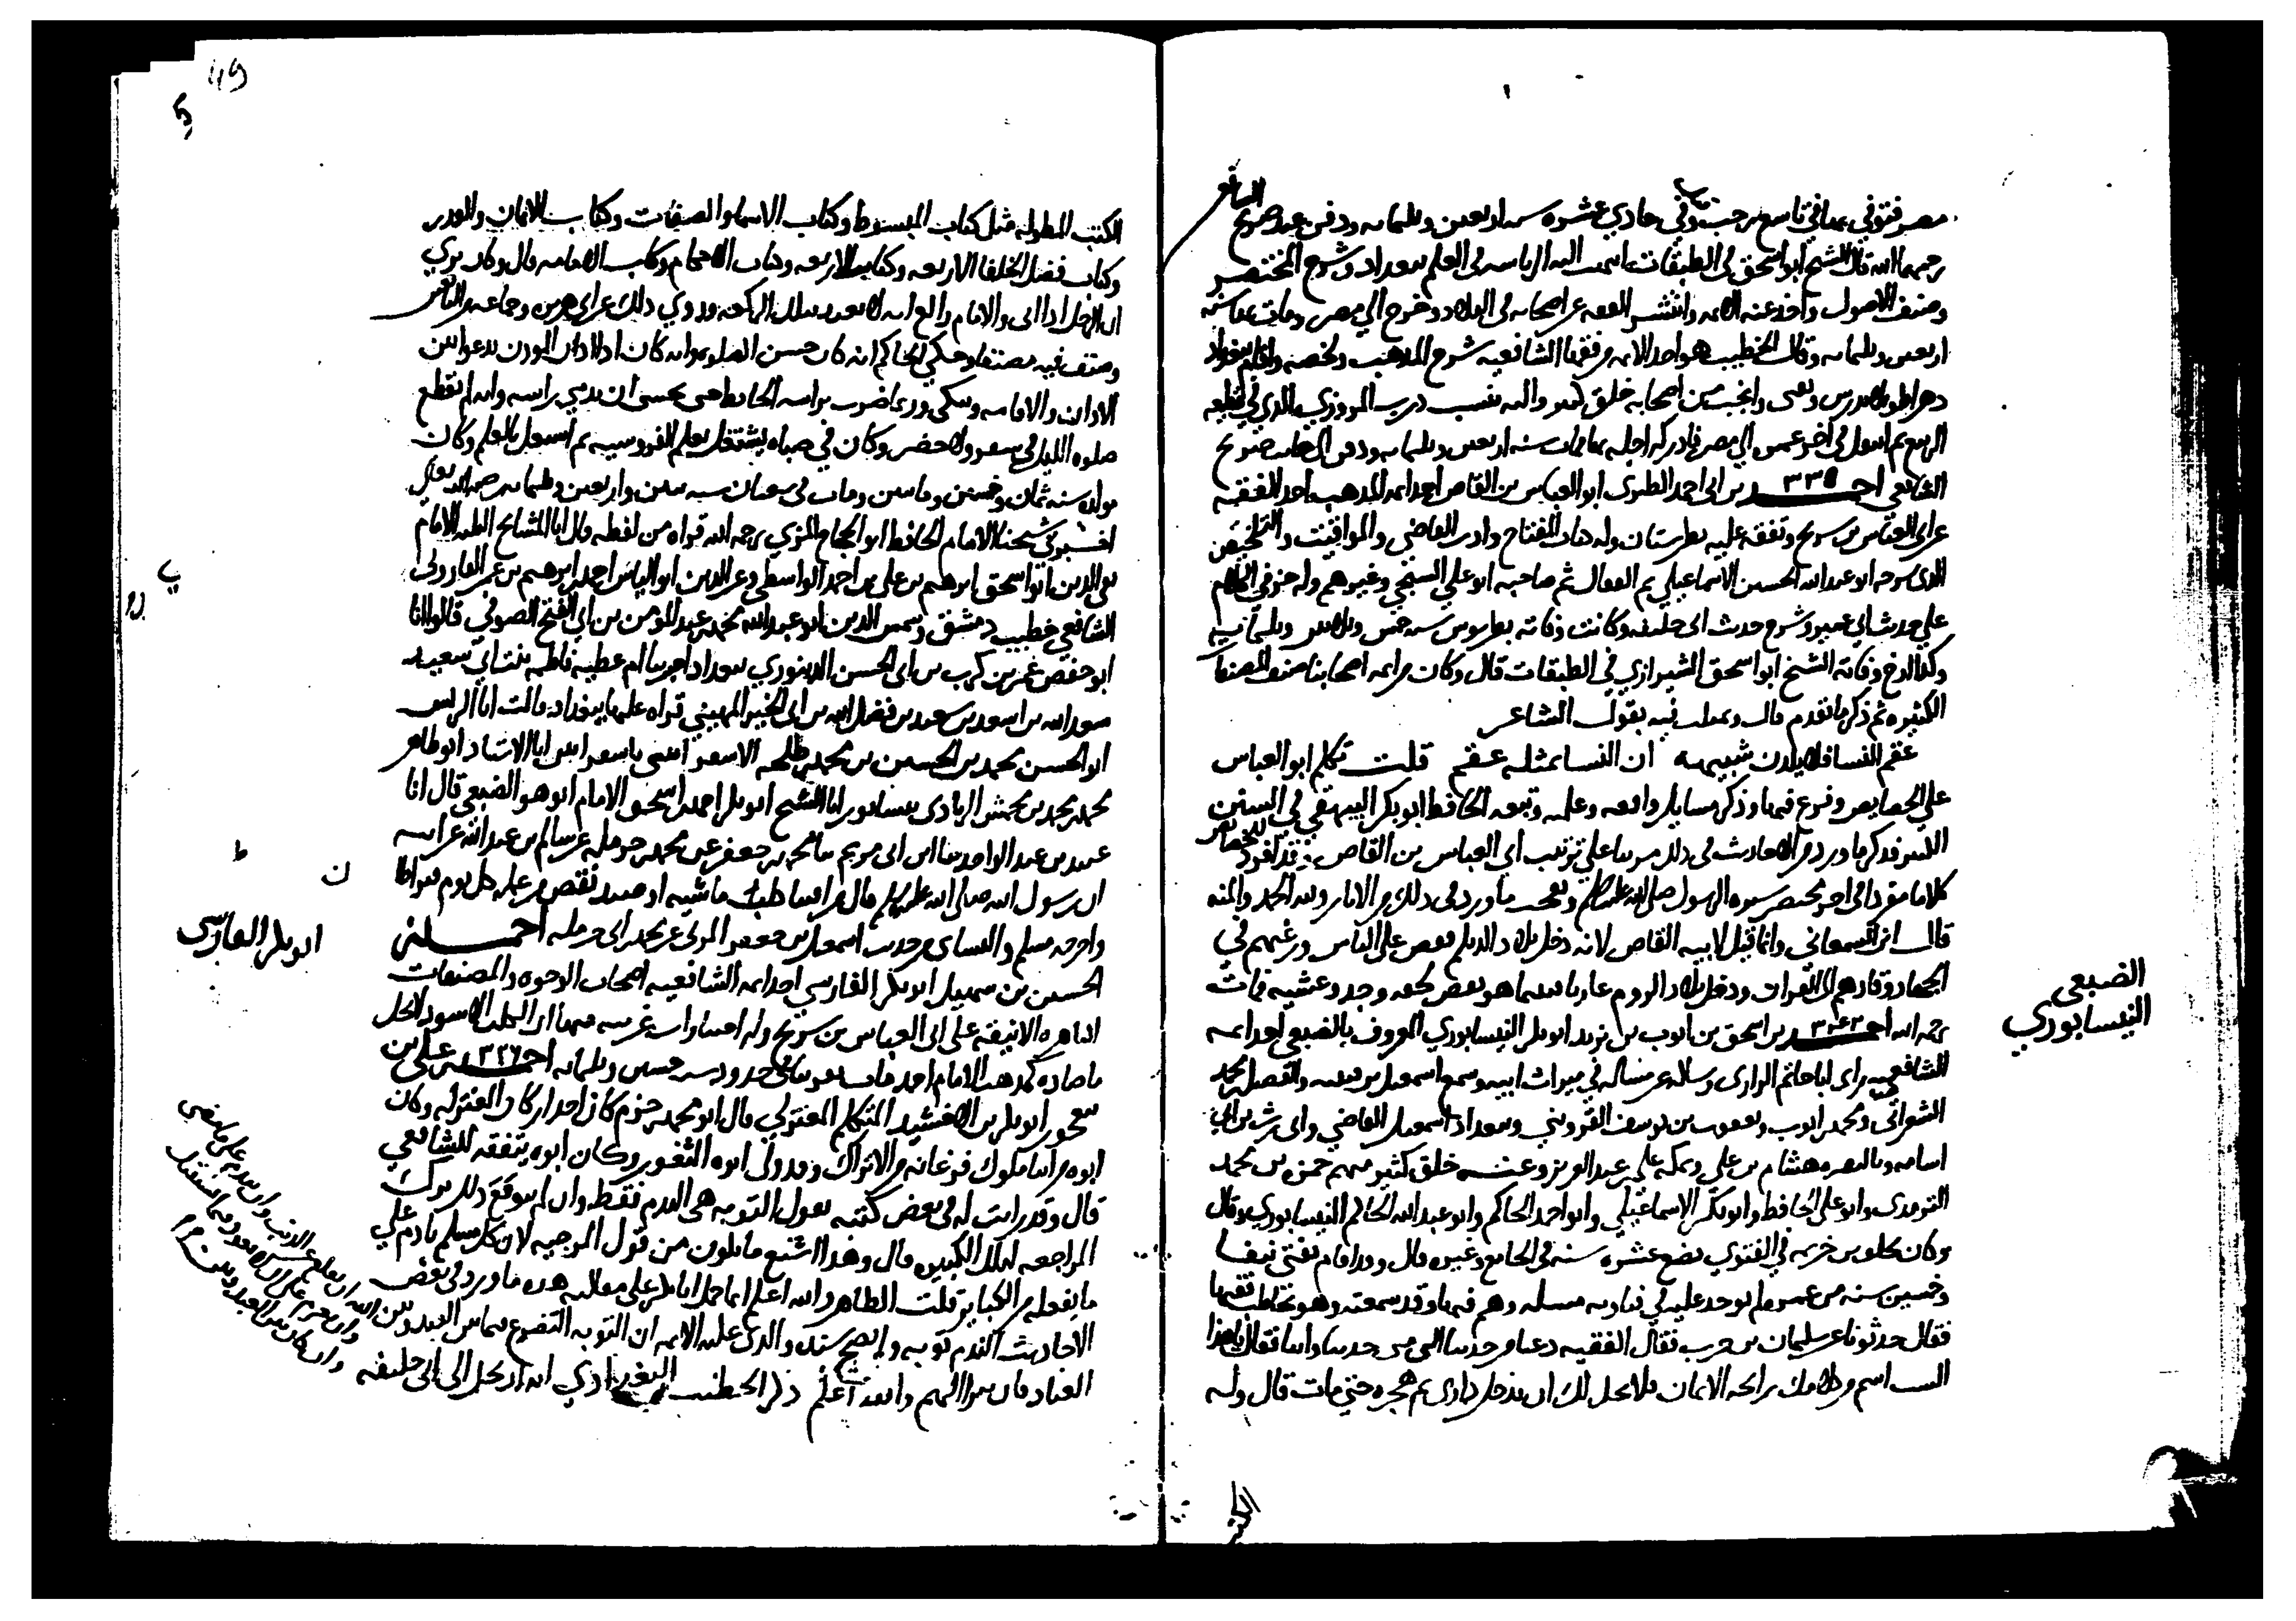 مصر فتوفي بها في تاسع رجب وقيل في حادي عشره سنه اربعين وثلثمايه ودفن عند ضريح الشافعي
رحمهما الله قال الشيخ ابو اسحق في الطبقات انتهت اليه الرياسه في العلم ببغداد وشرح المختصر
وصنف الاصول واخذ عنه الايمه وانتشر الفقه عن اصحابه في البلاد وخرج الي مصر ومات بها سنه
اربعين وثلثمايه وقال الخطيب هو احد الايمه من فقها الشافعيه شرح المذهب ولخصه واقام ببغداد
دهرا طويلا يدرس ويفتي وانجب من اصحابه خلق كثير واليه ينسب درب المروزي الذي في قطيعه
الربيع ثم انتقل في اخر عمره الي مصر فادركه اجله بها فمات سنه اربعين وثلثمايه ودفن الي جانب ضريح
الشافعي احمد ٣٣٥ بن ابي احمد الطبري ابو العباس بن القاص احد ايمه المذهب اخذ الفقه
عن ابي العباس بن سريج وتفقه عليه بطبرستان وله كتاب المفتاح وادب القاضي والمواقيت والتلخيص
الذي شرحه ابو عبد الله الحسين الاسماعيلي ثم القفال ثم صاحبه ابو علي السنجي وغيرهم وله جزو في الكلام
علي حديث ابي عمير وشرح حديث ابي حليفه وكانت وفاته بطرسوس سنه خمس وثلاثين وثلثمايه
وكذا ارخ وفاته الشيخ ابو اسحق الشيرازي في الطبقات قال وكان من ايمه اصحابنا صنف المصنفات
الكثيره ثم ذكر ما تقدم قال وتمثلت فيه بقول الشاعر
عقم النسا فلا يلدن شبيهه ان النسا بمثله عقم قلت تكلم ابو العباس
علي الخصايص وفرع فيها وذكر مسايل واقعه وعلميه وتبعه الحافظ ابو بكر البيهقي في السنن
الكبير فذكر ما ورد من الاحاديث في ذلك مرتبا علي ترتيب ابي العباس بن القاص وقد افرد للخصايص
كلاما مفردا في اخر مختصر سيره الرسول صلي الله عليه وسلم ما ورد في ذلك من الاثار ولله الحمد والمنه
قال ابن السمعاني وانما قيل لابيه القاص لانه دخل بلاد الديلم فقص علي الناس ورغبهم في
الجهاد وقادهم الي الغزاه ودخل بلاد الروم غازيا فبينما هو يقص لحقه وجد وغشيه فمات
رحمه الله احمد ٣٤٢ بن اسحق بن ايوب بن يزيد ابو بكر النيسابوري المعروف بالضبعي احد ايمه
الشافعيه راي ابا حاتم الرازي وساله عن مساله في ميراث ابيه وسمع اسمعيل بن قتيبه والفضل بن محمد
الشعراني ومحمد بن ايوب ويعقوب بن يوسف القزويني وببغداد اسمعيل القاضي والحرث بن ابي
اسامه وبالبصره هشام بن علي وبمكه علي بن عبد العزيز وعنه خلق كثير منهم حمزه بن محمد
وابو علي الحافظ وابو بكر الاسماعيلي وابو احمد الحاكم وابو عبد الله الحاكم النيسابوري وقال
وكان يخلف بن خزيمه في الفتوي بضع عشره سنه في الجامع وغيره قال وقد اقام يفتي نيفا
وخمسين سنه من عمره لم يوخذ عليه في فتاويه مسله وهم فيها وقد سمعته وهو يخاطب فقيها
فقال حدثونا عن سليمان بن حرب فقال الفقيه دعنا من حدثنا الي متي حدثنا وانبانا فقال يا هذا
لست اشم من كلامك رايحه الايمان فلا يحل لك ان تدخل داري ثم هجره حتي مات قال وله
الكتب
الضبعي
النيسابوري
49
الكتب المطوله مثل كتاب المبسوط وكتاب الاسما والصفات وكتاب الايمان والقدر
وكتاب فضل الخلفا الاربعه وكتاب الاحكام وكتاب الامامه قال وكان يري
ان الرجل اذا اتي والامام راكع انه لا يعتد بتلك الركعه وروي ذلك عن ابي هريره وجماعه من التابعين
وصنف فيه مصنفا وحكي الحاكم انه كان حسن الصلوه وانه كان اذا اذن الموذن يدعو بين
الاذان والاقامه ويبكي وربما ضرب براسه الحايط حتي يخشي ان يدمي راسه وانه لم يقطع
صلوه الليل في سفر ولا حضر وكان في صباه يشتغل بعلم الفروسيه ثم اشتغل بالعلم وكان
مولده سنه ثمان وخمسين ومايتين ومات في شعبان سنه ثنتين واربعين وثلثمايه رحمه الله تعالي
اخبرني شيخنا الامام الحافظ ابو الحجاج المزي رحمه الله قراه من لفظه قال انا المشايخ الثلثه الامام
تقي الدين ابو اسحق ابرهيم بن علي بن احمد الواسطي وعز الدين ابو العباس احمد بن ابرهيم بن عمر الفاروثي
الشافعي خطيب دمشق وشمس الدين ابو عبد الله محمد بن عبد المومن بن ابي الفتح الصوفي قالوا انا
ابو حفص عمر بن كرم بن ابي الحسن الدينوري ببغداد اخبرتنا ام عطيه فاطمه بنت ابي سعيد
سعد الله بن اسعد بن سعيد بن فضل الله بن ابي الخير الميهني قراه عليها ببغداد قالت انا الرييس
ابو الحسن محمد بن الحسين بن محمد بن طلحه انا الاستاد ابو طاهر
محمد بن محمد بن محمش الزيادي بنيسابور انا الشيخ ابو بكر احمد بن اسحق الامام ابو هو الضبعي قال انا
عبيد بن عبد الواحد ثنا ابن ابي مريم ثنا محمد بن جعفر عن محمد بن حرمله عن سالم بن عبد الله عن ابيه
ان رسول الله صلي الله عليه وسلم قال من اقتنا كلبا الا كلب ماشيه او صيد نقص من عمله كل يوم قيراط
واخرجه مسلم والنساي من حديث اسمعيل بن جعفر المدني عن محمد بن ابي حرمله احمد بن
الحسين بن سهيل ابو بكر الفارسي احد ايمه الشافعيه اصحاب الوجوه والمصنفات
الباهره الانيقه علي ابي العباس بن سريج وله اختيارات غريبه منها ان الكلب الاسود لا يحل
ما صاده كمذهب الامام احمد مات في حدود سنه خمسين وثلثمايه احمد ٣٢٦ بن علي بن
بيغجور ابو بكر بن الاخشيد المتكلم المعتزلي قال ابو محمد بن حزم كان احد اركان المعتزله وكان
ابوه من ابنا ملوك فرغانه من الاتراك وقد ولي ابوه الثغور وكان ابوه يتفقه للشافعي
قال وقد رايت له في بعض كتبه يقول التوبه هي الندم فقط وان لم ينو مع ذلك ترك
المراجعه لتلك الكبيره قال وهذا اشنع ما يكون من قول المرجيه لان كل مسلم نادم علي
ما يفعله من الكباير قلت الظاهر والله اعلم انما حمل ابا بكر علي مقاله هذه ما ورد في بعض
الاحاديث الندم توبه وان صح سنده والذي عليه الايمه ان التوبه
والله اعلم ذكر الخطيب البغدادي
ابو بكر الفارسي